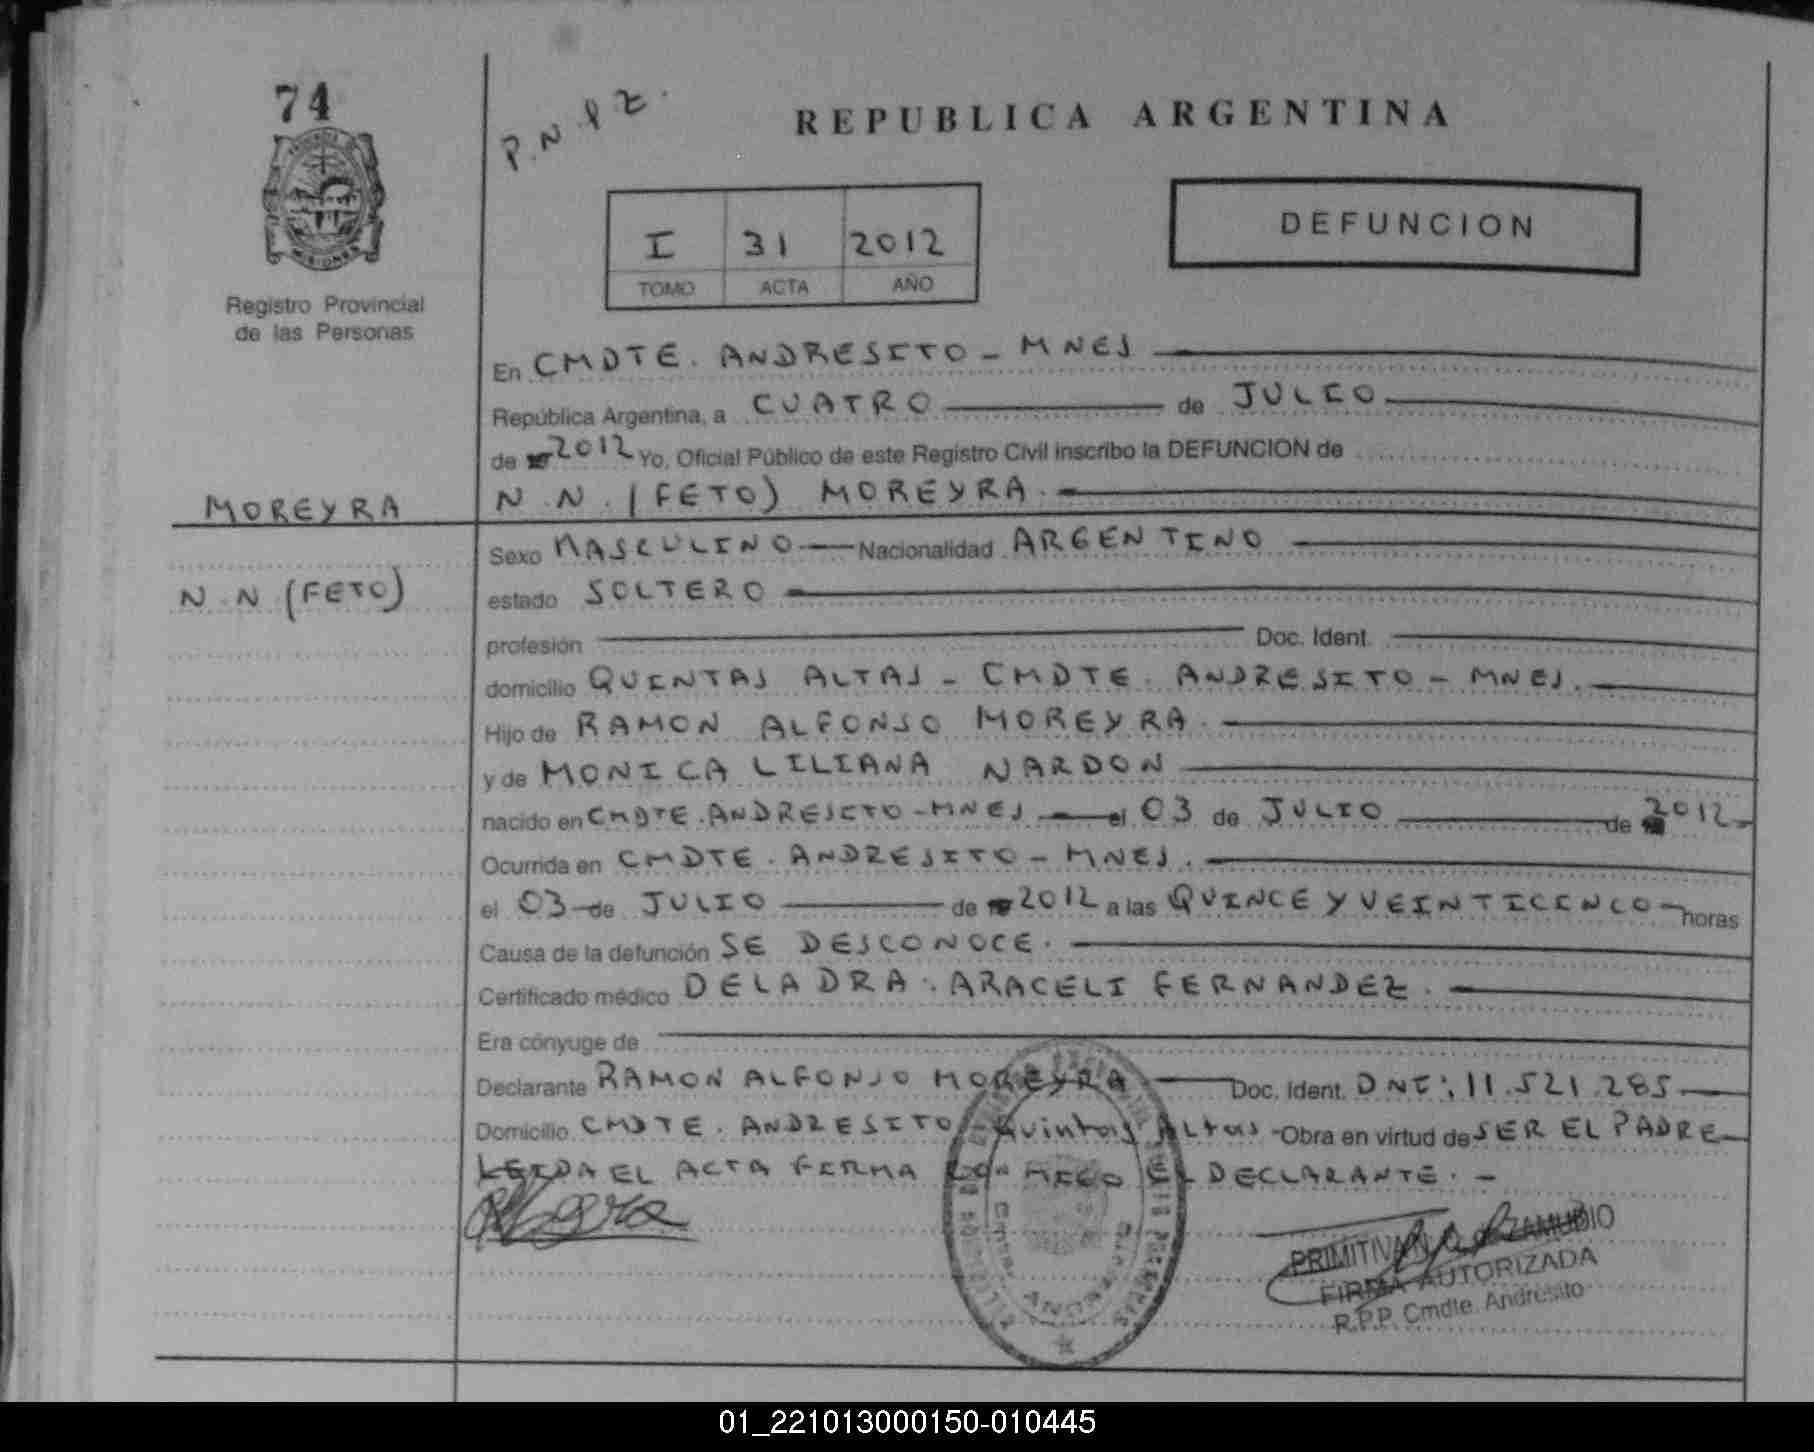 74
P.N.
REPUBLICA ARGENTINA
DEFUNCION
I 31 2012
TOMO ACTA AÑO
MISIONES
Registro Provincial
de las Personas
En CMDTE. ANDRESITO - MNES
República Argentina, a CUATRO de JULIO
de 2012 Yo, Oficial Público de este Registro Civil inscribo la DEFUNCION de
MOREYRA
N.N. (FETO) MOREYRA.
N.N (FETO)
Sexo MASCULINO Nacionalidad ARGENTINO
estado SOLTERO
profesión Doc. Ident.
domicilio QUINTAS ALTAS - CMDTE. ANDRESITO - MNES.
Hijo de RAMON ALFONSO MOREYRA.
y de MONICA LILIANA NARDON
nacido en CMDTE. ANDRESITO - MNES el 03 de JULIO de 2012
Ocurrida en CMDTE. ANDRESITO - MNES.
el 03 de JULIO de 2012 a las QUINCE Y VEINTICINCO horas
Causa de la defunción SE DESCONOCE.
Certificado médico DE LA DRA. ARACELI FERNANDEZ.
Era cónyuge de
Declarante RAMON ALFONSO MOREYRA Doc. Ident. DNI: 11.521.285
Domicilio CMDTE. ANDRESITO - Quintas Altas - Obra en virtud de SER EL PADRE
LEIDA EL ACTA FIRMA CONMIGO EL DECLARANTE. -
ZAMUDIO
FIRMA AUTORIZADA
R.P.P. Cmdte. Andresito
01_221013000150-010445